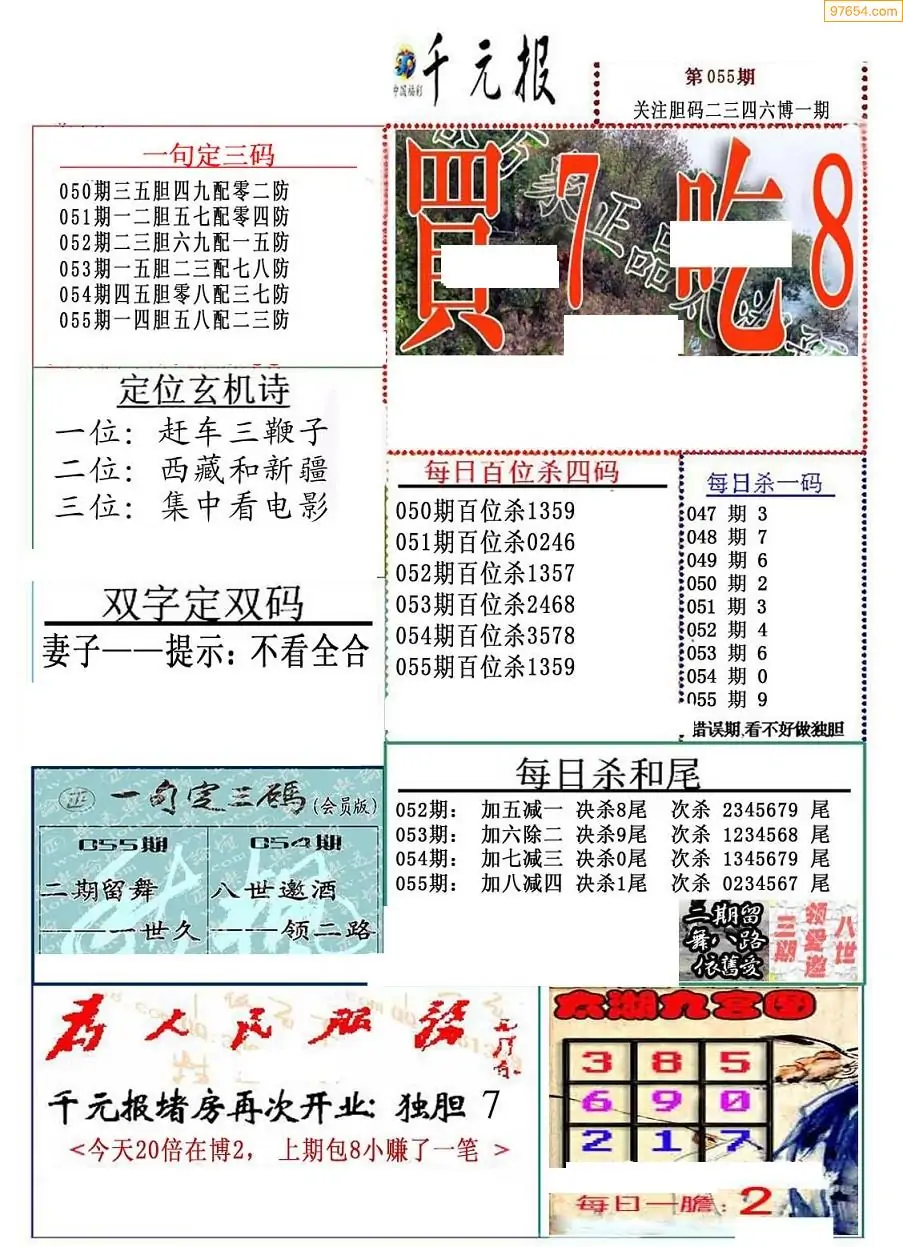 97654.com
中国福彩
千元报
第055期
关注胆码二三四六博一期
一句定三码
050期三五胆四九配零二防
051期一二胆五七配零四防
052期二三胆六九配一五防
053期一五胆二三配七八防
054期四五胆零八配三七防
055期一四胆五八配二三防
買7吃8
定位玄机诗
一位：赶车三鞭子
二位：西藏和新疆
三位：集中看电影
每日百位杀四码
050期百位杀1359
051期百位杀0246
052期百位杀1357
053期百位杀2468
054期百位杀3578
055期百位杀1359
每日杀一码
047 期 3
048 期 7
049 期 6
050 期 2
051 期 3
052 期 4
053 期 6
054 期 0
055 期 9
错误期,看不好做独胆
双字定双码
妻子——提示：不看全合
每日杀和尾
052期： 加五减一 决杀8尾 次杀 2345679 尾
053期： 加六除二 决杀9尾 次杀 1234568 尾
054期： 加七减三 决杀0尾 次杀 1345679 尾
055期： 加八减四 决杀1尾 次杀 0234567 尾
正 一句定三碼(会员版)
055期
二期留舞
———一世久
054期
八世邀酒
———领二路
三期留
舞八路
依舊爱
八世
领爱邀
三期
为人民服务
千元报堵房再次开业：独胆 7
<今天20倍在博2， 上期包8小赚了一笔 >
太湖九宫图
3 8 5
6 9 0
2 1 7
每日一膽：2